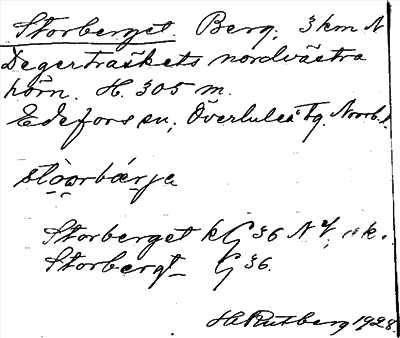 Storberget. Berg, 3 km N
Degerträskets nordvästra
hörn. H. 305 m.
Edefors sn, Överluleå tg. Norrb. l.
stoorbærja
Storberget k G 36 N
Storbergt G 36.
H. Rutberg 1928.